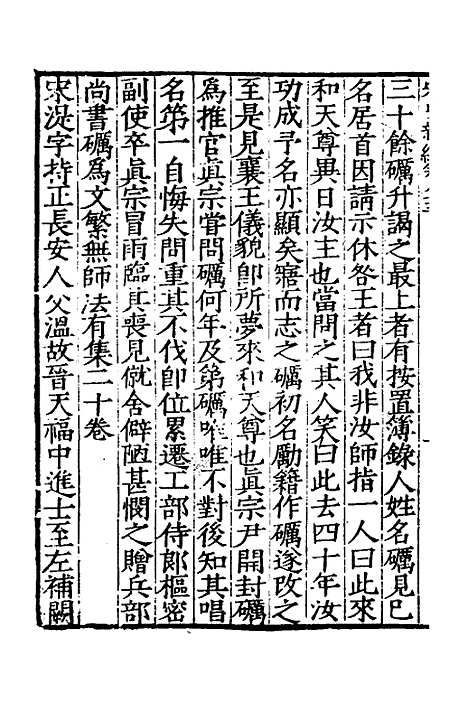 三十餘礪升謁之最上者有按置簿錄人姓名礪見巳
名居首因請示休咎王者曰我非汝師指一人曰此來
和天尊異日汝主也當問之其人笑曰此去四十年汝
功成予名亦顯矣寤而志之礪初名勵籍作礪遂改之
至是見襄王儀貌卽所夢來和天尊也眞宗尹開封礪
爲推官眞宗嘗問礪何年及第礪唯唯不對後知其唱
名第一自悔失問重其不伐卽位累遷工部侍郞樞密
副使卒眞宗冒雨臨其喪見僦舍僻陋甚憫之贈兵部
尚書礪爲文繁無師法有集二十卷
宋湜字持正長安人父溫故晉天福中進士至左補闕